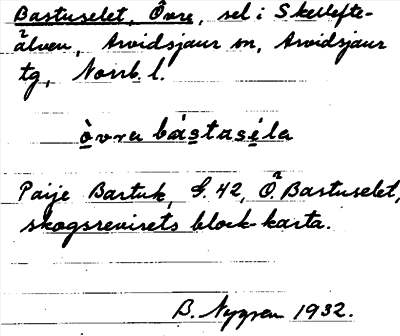 Bastuselet, Övre, sel i Skellefte-
älven, Arvidsjaur sn, Arvidsjaur
tg, Norrb. l.
òvra bástaséla
Paije Bastuk, G. 42, Ö. Bastuselet,
skogsrevirets block-karta.
B. Nygren 1932.